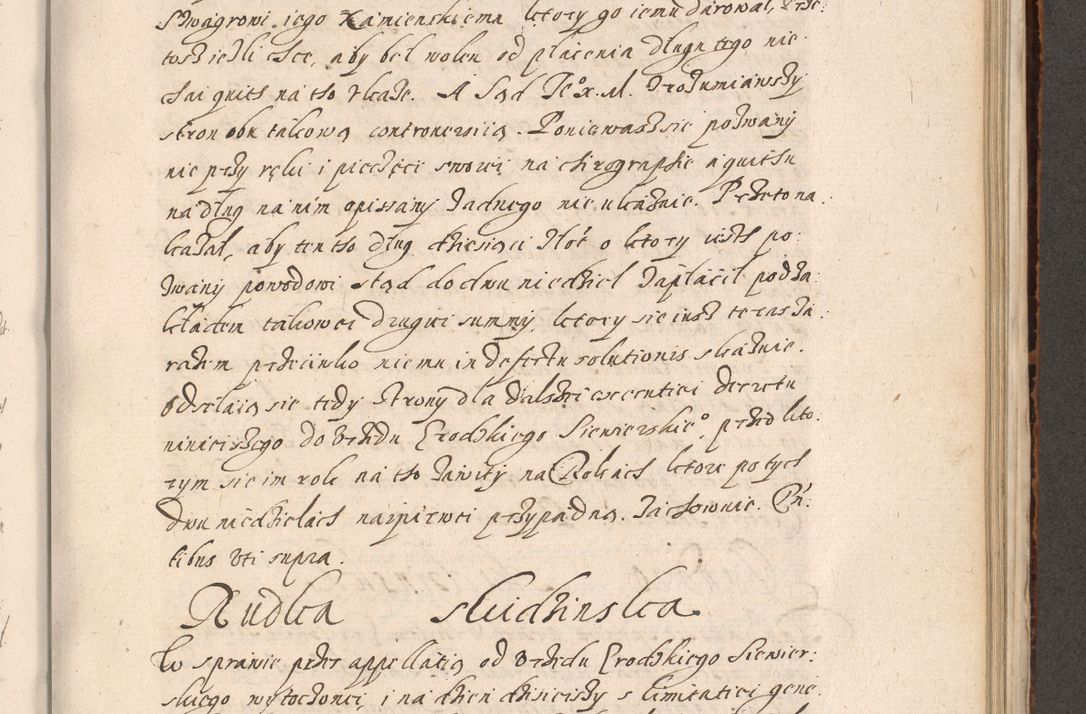 Szwagrowi iego Kamienskiemu ktory go iemu darował, Prze:
tosz ieżli chce, aby beł wolen od płacenia długu tego nie:
chai quith na tho vkaże. A Sąd Je° X. M. zrozumiawszy
stron obu takową controuersią. Poniewasz sie pozwany
nie przy ręki i pieczęci swoiei na chirographie a quithu
na dług na nim opissany zadnego nie ukaźuie. Przeto na:
kazał, aby ten tho dług dziesiąci złot o ktory iesth po:
zwany powodowi stąd do dwu niedziel zapłacił pod za:
kładem takowei drugiei summy, ktory sie iusz teraz za:
razem przeciwko niemu in defectu solutionis skazuie.
Odselaią sie tedy Strony dla dalszei executiei decretu
ninieiszego do Vrzędu Grodzkiego Siewierskie°. przed kto:
rym sie im rok na tho zawity na Rokach ktore po tych
dwu niedzielach naipierwei przypadną. Zachowuie. Pñ:
tibus vti supra.
Rudka Sludzinska
W sprawie przez appellatią od Vrzędu Grodzkiego Siewier:
skiego wytoczonei, i na dzien dzisieiszy s limitatiei gene: